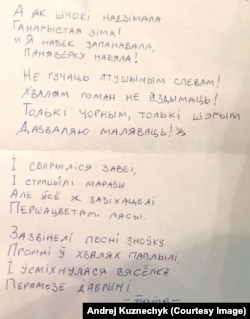 А як шчокі надзімала
Ганарыстая зіма!
"Я навек запанавала,
Паняверку навяла!
Не гучаць птушыным спевам!
Хвалям гоман не ўздымаць!
Толькі чорным, толькі шэрым
Дазваляю маляваць!"
І сварыліся завеі,
І страшылі маразы.
Але ўсё ж зазіхацелі
Першацветамі лясы.
Зазвінелі песні зноўку
Промні ў хвалях паплылі.
І ўсміхнулася вясёлка
Перамозе дабрыні.
Andrej Kuznechyk (Courtesy Image)